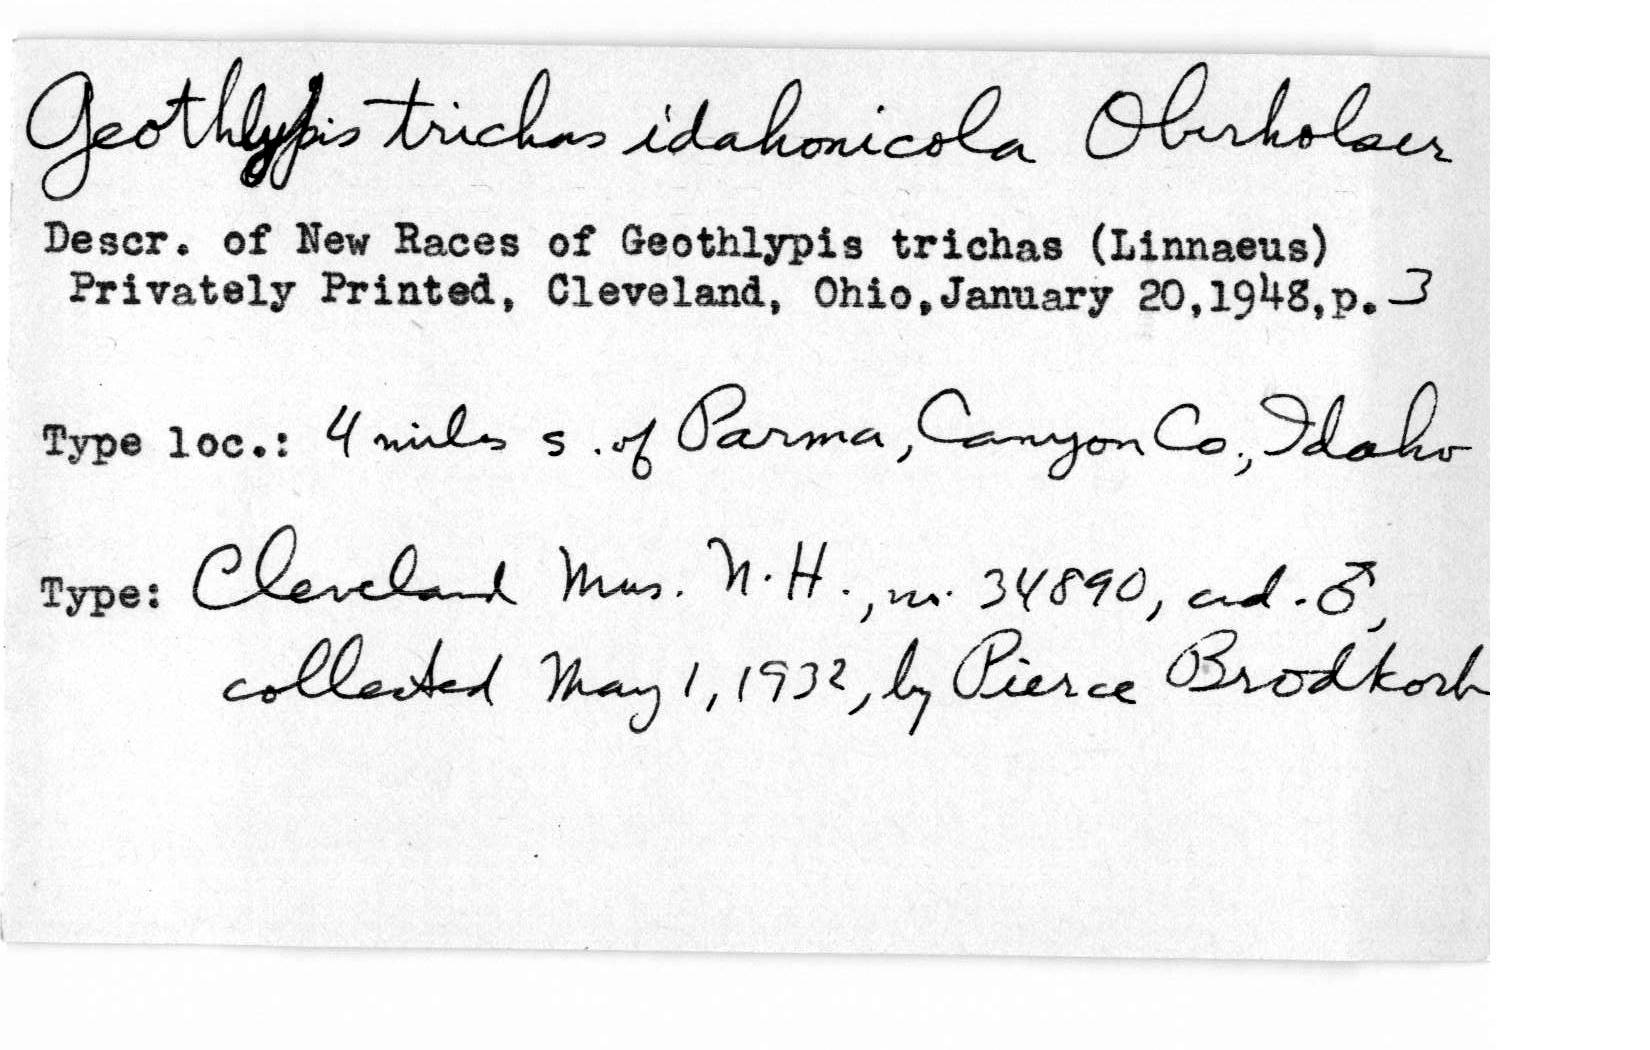 Geothlypis trichas idahonicola Oberholser
Descr. of New Races of Geothlypis trichas (Linnaeus)
Privately Printed, Cleveland, Ohio, January 20, 1948, p. 3
Type loc.: 4 miles s. of Parma, Canyon Co., Idaho
Type: Cleveland Mus. N.H., no. 34890, ad. ♂,
collected May 1, 1932, by Pierce Brodkorb